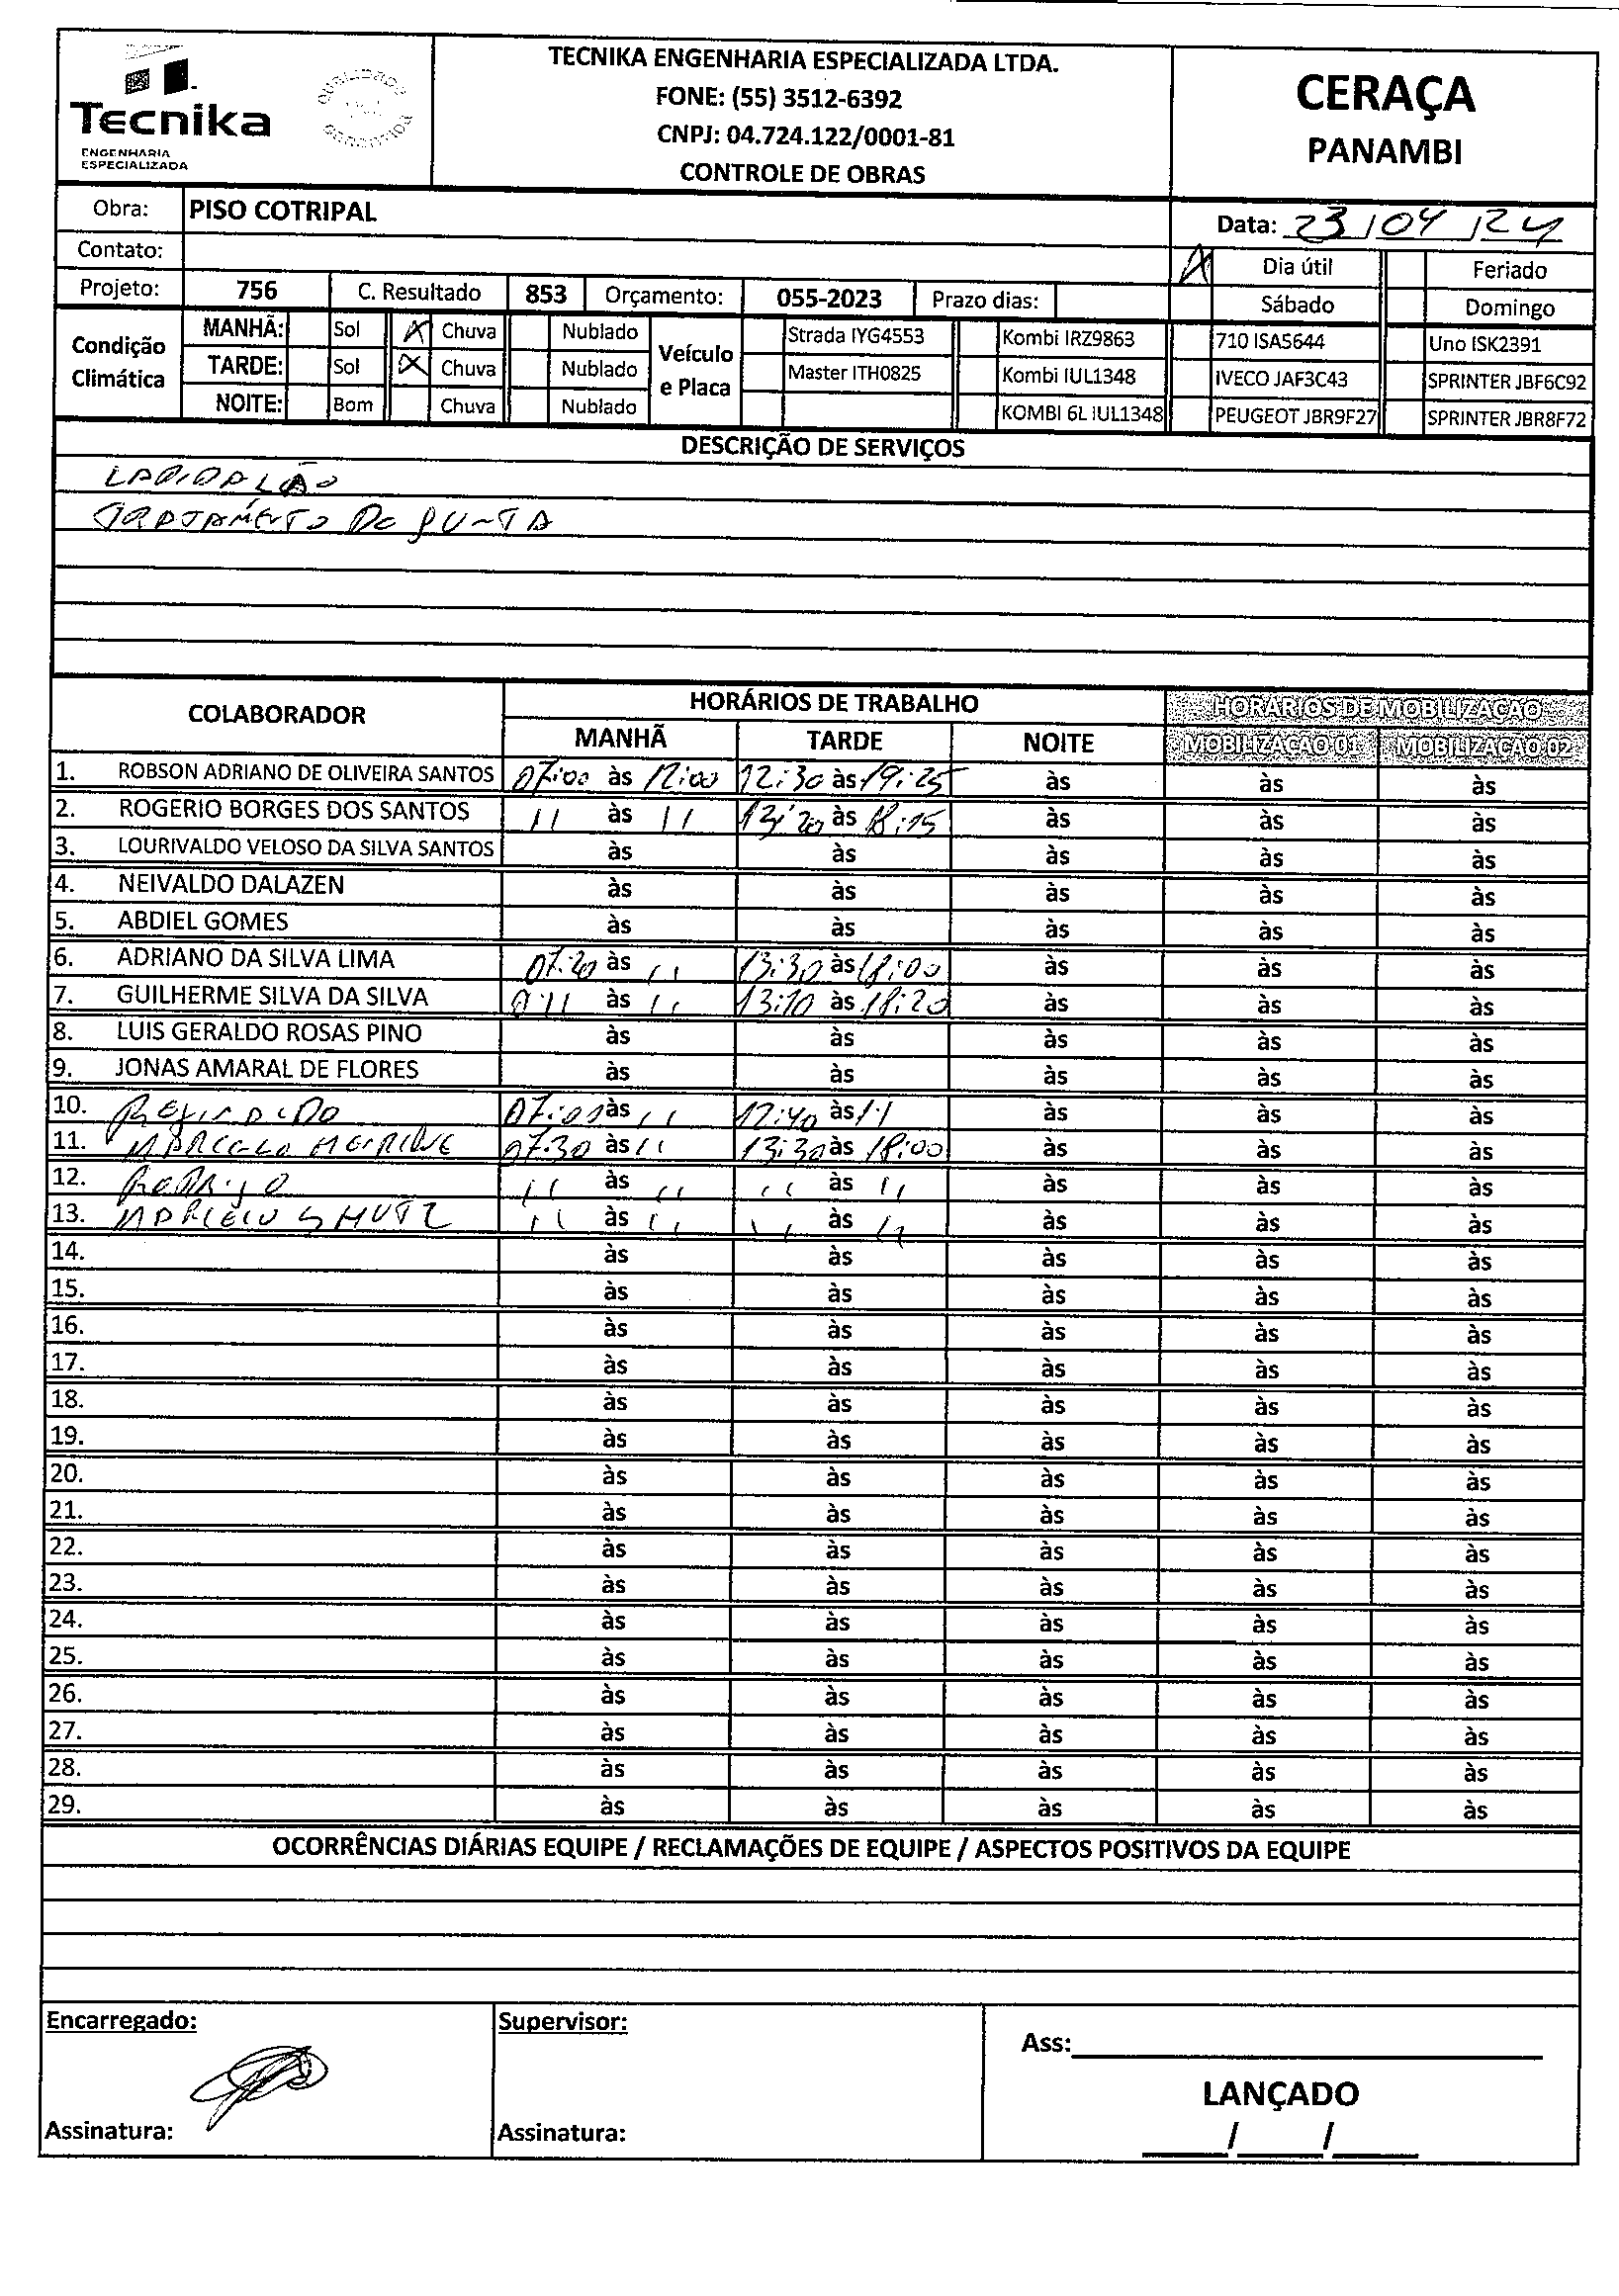 Tecnika
ENGENHARIA
ESPECIALIZADA
QUALIDADE
TECNIKA ENGENHARIA ESPECIALIZADA LTDA.
FONE: (55) 3512-6392
CNPJ: 04.724.122/0001-81
CONTROLE DE OBRAS
CERAÇA
PANAMBI
Obra: PISO COTRIPAL
Data: 23/04/24
Contato:
X Dia útil Feriado
Projeto: 756 C. Resultado 853 Orçamento: 055-2023 Prazo dias:
Sábado Domingo
Condição Climática
MANHÃ: Sol X Chuva Nublado
TARDE: Sol X Chuva Nublado
NOITE: Bom Chuva Nublado
Veículo e Placa
Strada IYG4553 Kombi IRZ9863 710 ISA5644 Uno ISK2391
Master ITH0825 Kombi IUL1348 IVECO JAF3C43 SPRINTER JBF6C92
KOMBI 6L IUL1348 PEUGEOT JBR9F27 SPRINTER JBR8F72
DESCRIÇÃO DE SERVIÇOS
TRATAMENTO DE JUNTA
COLABORADOR HORÁRIOS DE TRABALHO HORÁRIOS DE MOBILIZAÇÃO
MANHÃ TARDE NOITE MOBILIZAÇÃO 01 MOBILIZAÇÃO 02
1. ROBSON ADRIANO DE OLIVEIRA SANTOS 07:00 às 12:00 12:30 às 19:25 às às às
2. ROGERIO BORGES DOS SANTOS 11 às 11 13:20 às 18:15 às às às
3. LOURIVALDO VELOSO DA SILVA SANTOS às às às às às
4. NEIVALDO DALAZEN às às às às às
5. ABDIEL GOMES às às às às às
6. ADRIANO DA SILVA LIMA 07:20 às 11 13:30 às 18:00 às às às
7. GUILHERME SILVA DA SILVA às 11 13:10 às 18:20 às às às
8. LUIS GERALDO ROSAS PINO às às às às às
9. JONAS AMARAL DE FLORES às às às às às
10. REGINALDO 07:01 às 11 12:40 às 11 às às às
11. MARCELO HENRIQUE 07:30 às 11 13:30 às 18:00 às às às
12. 11 às 11 11 às 11 às às às
13. 11 às 11 11 às 11 às às às
14. às às às às às
15. às às às às às
16. às às às às às
17. às às às às às
18. às às às às às
19. às às às às às
20. às às às às às
21. às às às às às
22. às às às às às
23. às às às às às
24. às às às às às
25. às às às às às
26. às às às às às
27. às às às às às
28. às às às às às
29. às às às às às
OCORRÊNCIAS DIÁRIAS EQUIPE / RECLAMAÇÕES DE EQUIPE / ASPECTOS POSITIVOS DA EQUIPE
Encarregado: Supervisor:
Ass:
LANÇADO
Assinatura: Assinatura:
/ /